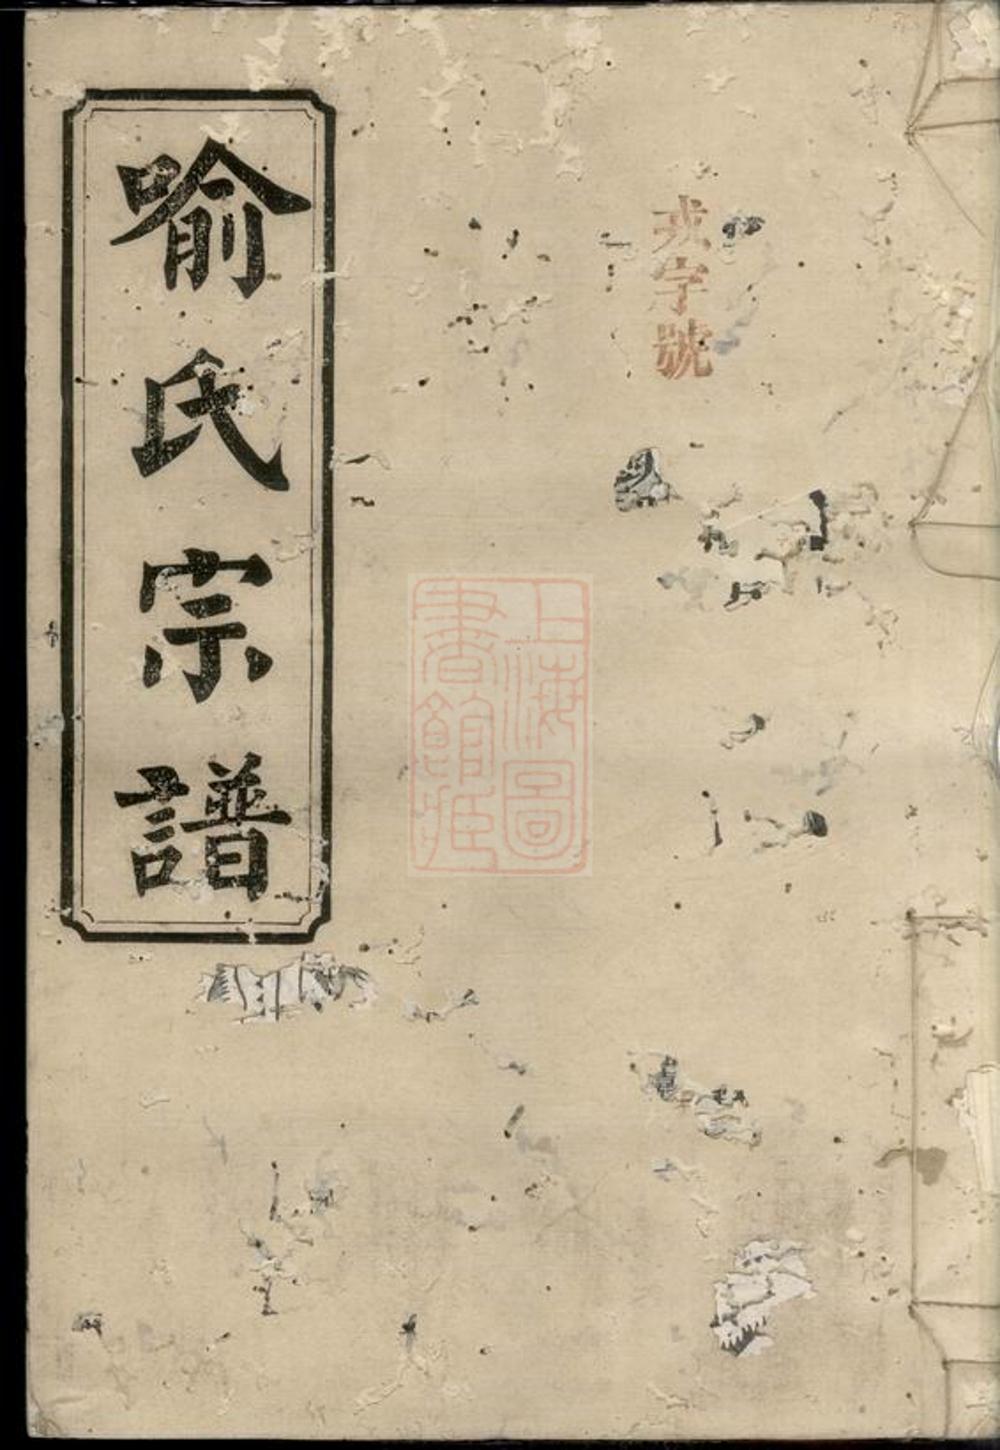 戎字號
上海圖
書館藏
喻氏宗譜